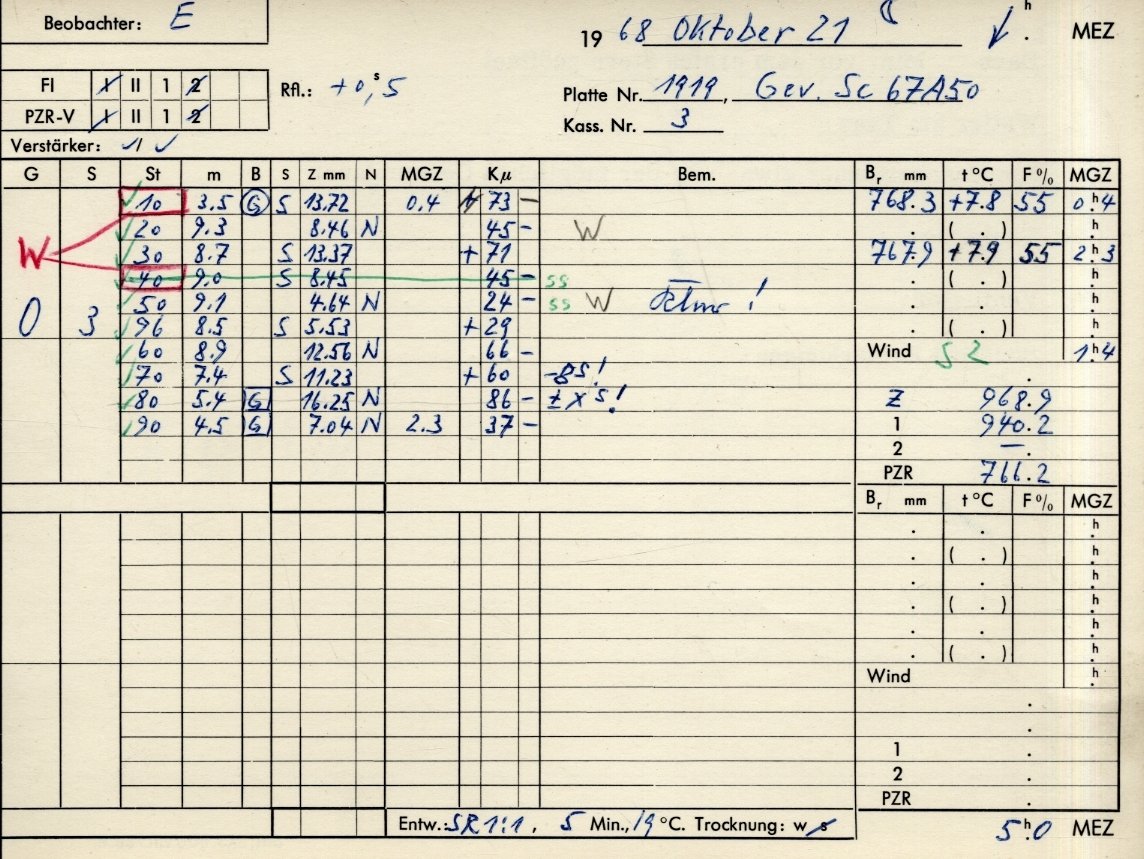 Beobachter: E
19 68 Oktober 21 h MEZ
FI I II 1 2
PZR-V I II 1 2
Rfl.: +0,s5
Platte Nr. 1919, Gev. Sc 67A50
Kass. Nr. 3
Verstärker: √ / √
G S St m B S Z mm N MGZ Kμ Bem. Br mm t°C F% MGZ
10 3.5 G S 13.72 0.4 + 73 – 768.3 +7.8 55 0.h4
20 9.3 8.46 N 45 – W . ( . ) h.
W 30 8.7 S 13.37 + 71 767.9 +7.9 55 2.h3
40 9.0 S 8.45 45 – ss . ( . ) h.
50 9.1 4.64 N 24 – ss W ! . . h.
0 3 96 8.5 S 5.53 + 29 . ( . ) h.
60 8.9 12.56 N 66 – Wind S 2 1.h4
70 7.4 S 11.23 + 60 -gs! .
80 5.4 G 16.25 N 86 – ± x s! Z 968.9
90 4.5 G 7.04 N 2.3 37 – 1 940.2
2 — .
PZR 766.2
Br mm t°C F% MGZ
. . h.
. ( . ) h.
. . h.
. ( . ) h.
. . h.
. ( . ) h.
Wind h.
.
.
1 .
2 .
PZR .
Entw.: SR 1:1, 5 Min., 19 °C. Trocknung: w/s 5.h0 MEZ